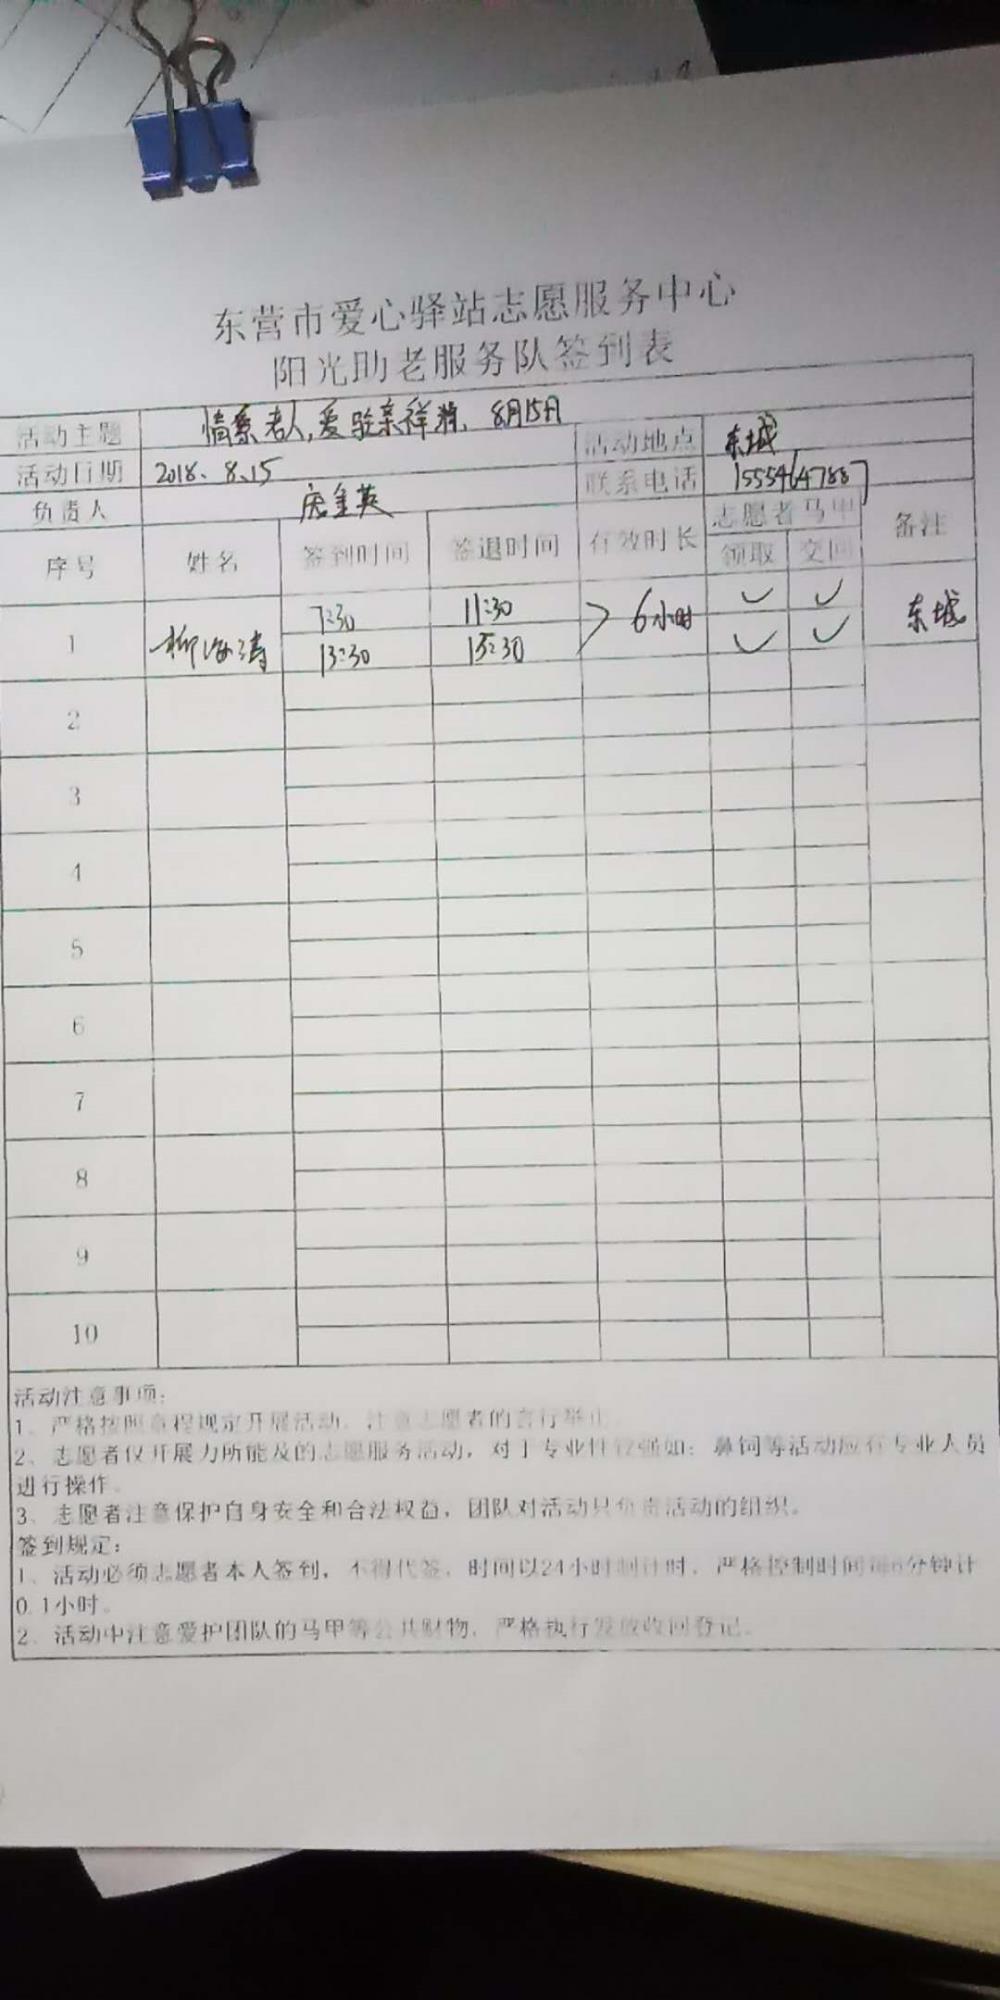 东营市爱心驿站志愿服务中心
阳光助老服务队签到表
活动主题 情系老人,爱驻亲祥 8月15日
活动日期 2018、8.15 活动地点 东城
负责人 庞金英 联系电话 15554647887
序号 姓名 签到时间 签退时间 有效时长 志愿者马甲 备注
领取 交回
1 柳海涛 7:30 11:30 6小时 ✓ ✓ 东城
13:30 15:30 ✓ ✓
2
3
4
5
6
7
8
9
10
活动注意事项:
1、严格按照章程规定开展活动、注意志愿者的言行举止
2、志愿者仅开展力所能及的志愿服务活动,对于专业性较强如:鼻饲等活动应有专业人员
进行操作。
3、志愿者注意保护自身安全和合法权益,团队对活动只负责活动的组织。
签到规定:
1、活动必须志愿者本人签到,不得代签,时间以24小时制计时,严格控制时间每6分钟计
0.1小时。
2、活动中注意爱护团队的马甲等公共财物,严格执行发放收回登记。